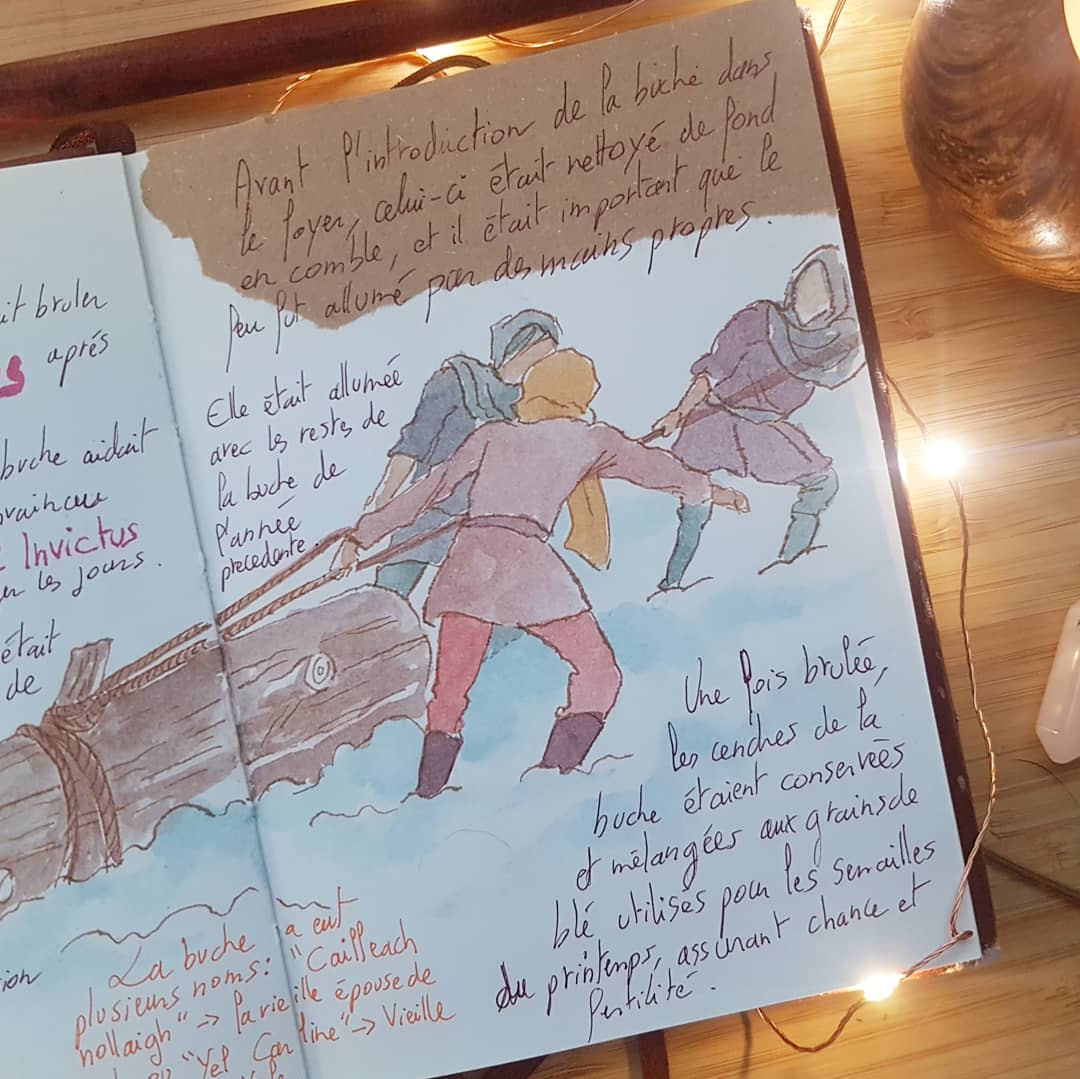 it bruler
s après
buche aidait
Invictus
les jours.
était
de
Avant l'introduction de la buche dans
le foyer, celui-ci était nettoyé de fond
en comble, et il était important que le
feu fut allumé par des mains propres.
Elle était allumée
avec les restes de
la buche de
l'année
precedente.
Une fois brulée,
les cendres de la
buche étaient conservées
et mélangées aux grains de
blé utilisés pour les semailles
du printemps, assurant chance et
fertilité.
La buche a eut
plusieurs noms: "Cailleach
nollaigh" -> la vieille épouse de
"Yel Carline" -> Vieille